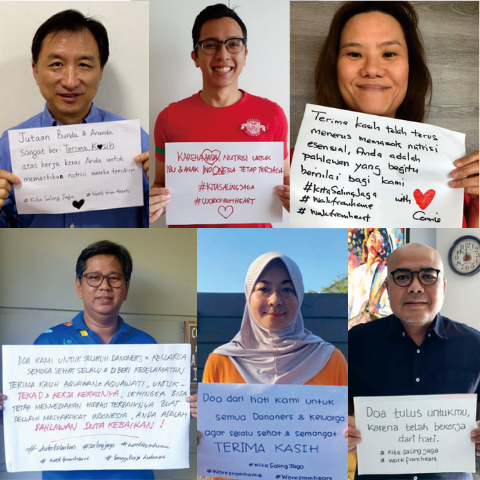 Jutaan Bunda & Ananda
sangat ber- Terima Kasih
atas kerja keras Anda untuk
memastikan nutrisi mereka tercukupi
#Kita Saling Jaga #Work from heart
KARENAMU, NUTRISI UNTUK
IBU & ANAK INDONESIA TETAP TERJAGA
#KITASALINGJAGA
#WORKFROMHEART
Terima kasih telah terus
menerus memasok nutrisi
esensial, Anda adalah
pahlawan yang begitu
bernilai bagi kami
#KitaSalingJaga with
#Workfromhome
#Workfromheart Connie
DOA KAMI UNTUK SELURUH DANONERS & KELUARGA
SEMOGA SEHAT SELALU & DIBERI KESELAMATAN.
TERIMA KASIH AQUAWAN & AQUAWATI, UNTUK -
TEKAD & KERJA KERASNYA, SEHINGGA BISA
TETAP MENYEDIAKAN HIDRASI TERBAIKNYA BUAT
SELURUH MASYARAKAT INDONESIA. ANDA ADALAH
PAHLAWAN DUTA KEBAIKAN!
#salingjaga #workfromhome
#workfromheart
Doa dari hati kami untuk
semua Danoners & keluarga
agar selalu sehat & semangat
TERIMA KASIH
#KitaSalingJaga
#Workfromhome #Workfromheart
Doa tulus untukmu,
karena telah bekerja
dari hati.
#KitaSalingJaga
#Workfromheart